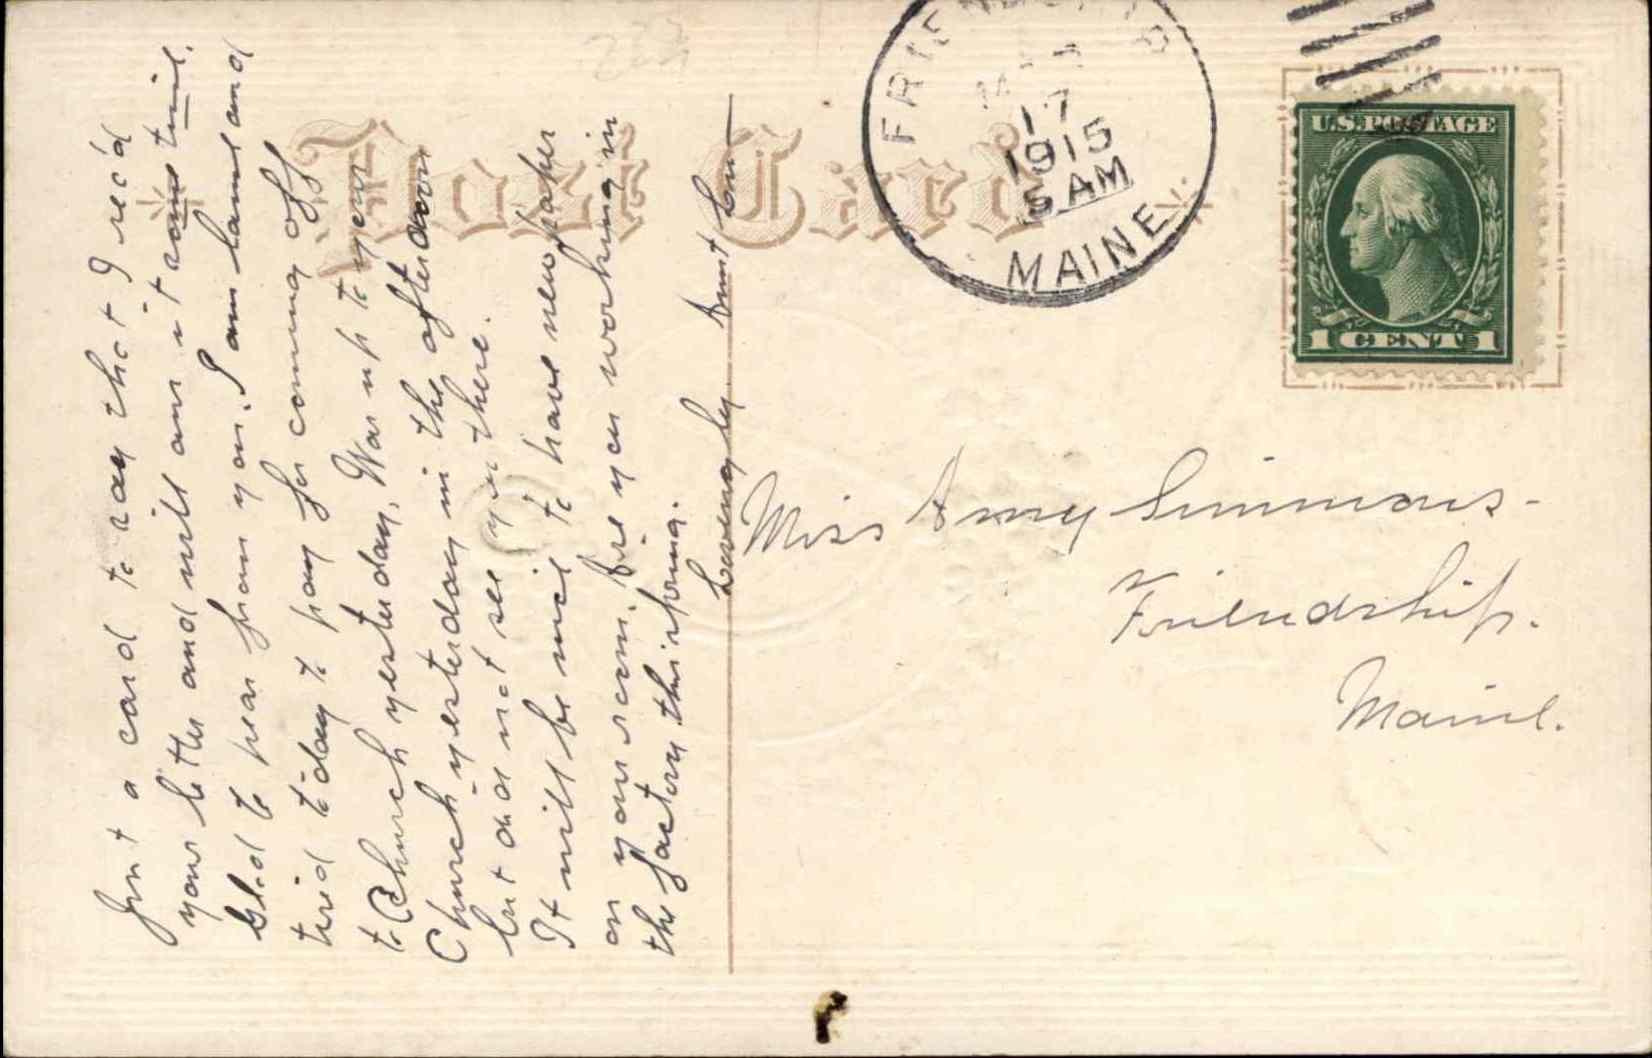 Post Card
FRIENDSHIP
MAY
17
1915
5 AM
MAINE
U.S. POSTAGE
1 CENT 1
Just a card to say that I rec'd
your letter and will ans it some time.
Glad to hear from you. I am lame and
tired to day to pay for coming off
to Church yesterday. Was up to your
Church yesterday in the afternoon
but did not see you there.
It will be nice to have new paper
on your room. Are you working in
the factory this spring.
Lovingly Aunt
Miss Amy Simmons-
Friendship.
Maine.